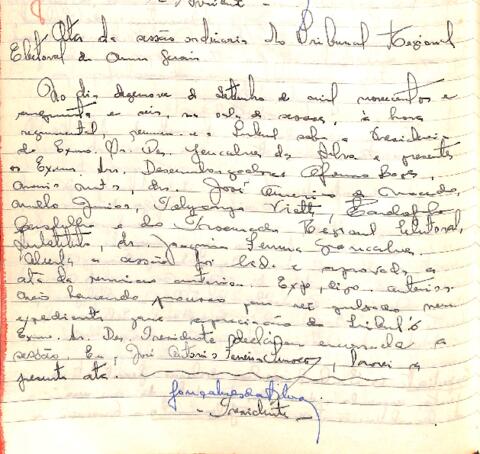 Ata da sessão ordinaria do Tribunal Regional
Eleitoral de Minas Gerais
Ao dia dezenove de setembro de mil novecentos e
cinquenta e seis, na sala de sessões, à hora
regimental, reuniu-se o Tribunal sob a Presidencia
do Exmo. Sr. Des. Gonçalves da Silva e presentes
os Exmos. Srs. Desembargadores Afonso
drs. José Americo de Macedo,
Mello Junior,
e do Procurador Regional Eleitoral,
Substituto, dr. Joaquim Ferreira Gonçalves.
Aberta a sessão foi lida e aprovada a
ata da reunião anterior. Exp, digo, anterior.
Não havendo processo para ser julgado nem
expediente para apreciação do Tribunal o
Exmo. Sr. Des. Presidente declarou encerrada a
sessão. Eu, José Antonio lavrei a
presente ata.
Gonçalves da Silva
- Presidente -